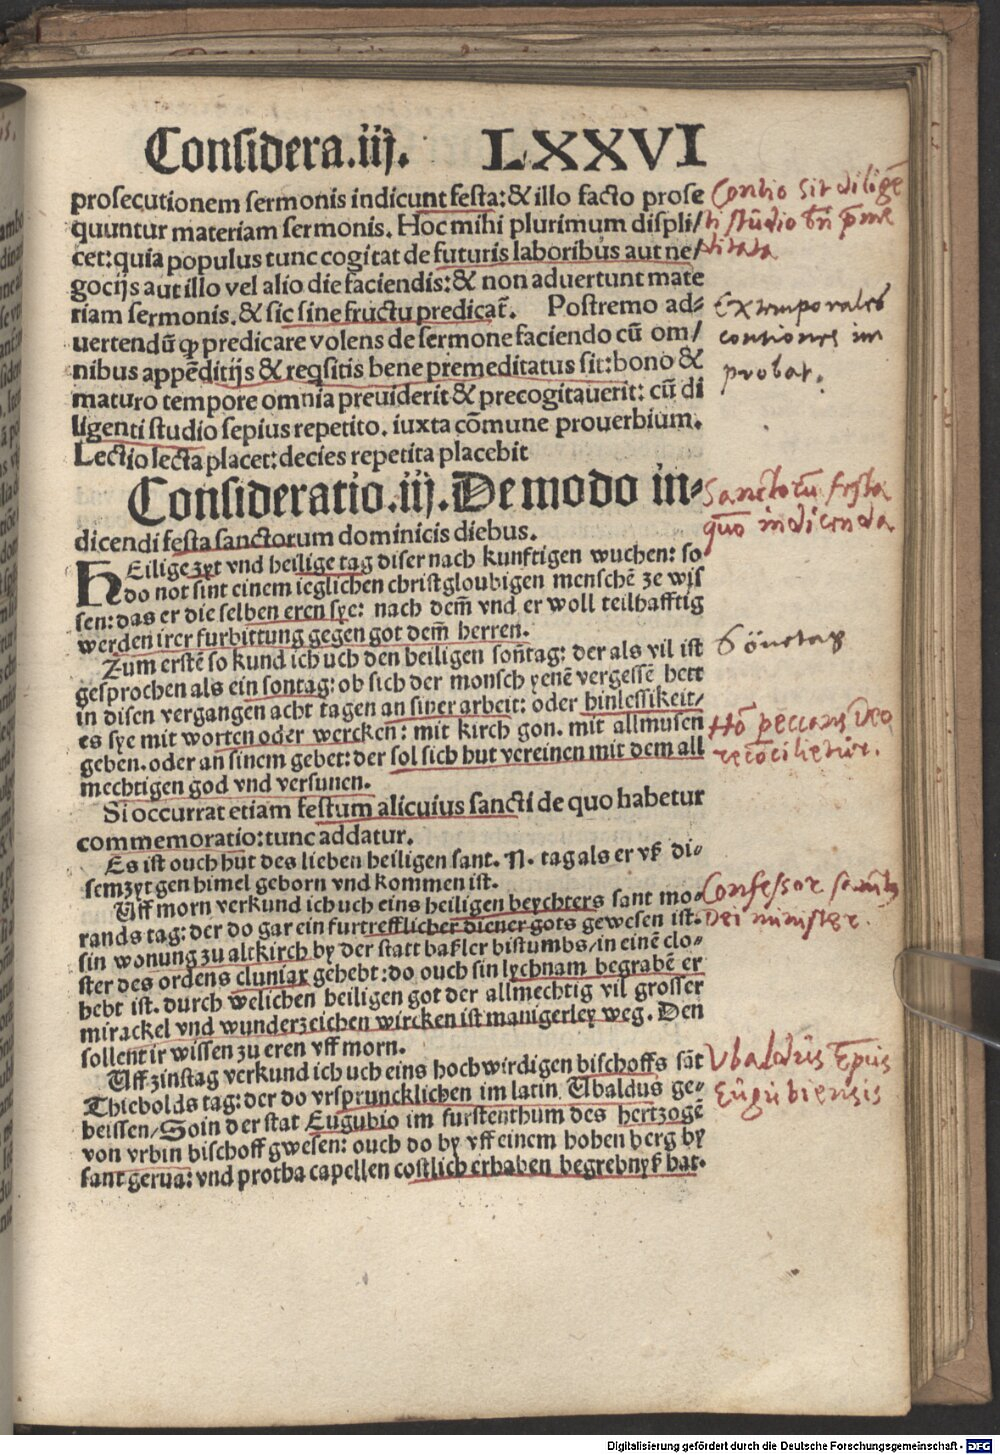 Considera.iij. LXXVI
prosecutionem sermonis indicunt festa:& illo facto prose
quuntur materiam sermonis. Hoc mihi plurimum displi/
cet:quia populus tunc cogitat de futuris laboribus aut ne/
gocijs aut illo vel alio die faciendis:& non aduertunt mate
riam sermonis.& sic sine fructu predicat̃. Postremo ad⸗
uertendũ ꝙ predicare volens de sermone faciendo cũ om/
nibus appẽditijs & reqsitis bene premeditatus sit:bono &
maturo tempore omnia preuiderit & precogitauerit: cũ di
ligenti studio sepius repetito. iuxta cõmune prouerbium.
Lectio lecta placet:decies repetita placebit
Consideratio.iij.De modo in⸗
dicendi festa sanctorum dominicis diebus.
HEilige zyt vnd heilige tag diser nach kunftigen wuchen: so
do not sint einem ieglichen christgloubigen menschẽ ze wis
sen:das er die selben eren sye: nach dem̃ vnd er woll teilhafftig
werden irer furbittung gegen got dem̃ herren.
Zum erstẽ so kund ich uch den heiligen soñtag: der als vil ist
gesprochen als ein sontag: ob sich der monsch yenẽ vergessẽ hett
in disen vergangen acht tagen an siner arbeit: oder hinlessikeit/
es sye mit worten oder wercken: mit kirch gon. mit allmusen
geben. oder an sinem gebet: der sol sich hut vereinen mit dem all
mechtigen god vnd versunen.
Si occurrat etiam festum alicuius sancti de quo habetur
commemoratio:tunc addatur.
Es ist ouch hut des lieben heiligen sant. N. tag als er vß di⸗
sem zyt gen himel geborn vnd kommen ist.
Uff morn verkund ich uch eins heiligen beychters sant mo⸗
rands tag: der do gar ein furtrefflicher diener gots gewesen ist.
sin wonung zu altkirch by der statt baßler bistumbs/in einẽ clo⸗
ster des ordens cluniax gehebt:do ouch sin lychnam begrabẽ er
hebt ist. durch welichen heiligen got der allmechtig vil grosser
mirackel vnd wunderzeichen wircken ist manigerley weg. Den
sollent ir wissen zu eren vff morn.
Uff zinstag verkund ich uch eins hochwirdigen bischoffs sãt
Thiebolds tag: der do vrspruncklichen im latin Ubaldus ge⸗
heissen/So in der stat Eugubio im furstenthum des hertzogẽ
von vrbin bischoff gwesen: ouch do by vff einem hohen berg by
sant gerua: vnd protha capellen costlich erhaben begrebnyß hat.
Contio sit diligẽ
ti stũdio bñ p̃me
ditata
Extemporales
contiones im
probat.
Sanctorũ festa
quõ indicenda
Sõnetag
Hõ peccans deo
recõcilietur.
Confessor sanctus
Dei minister.
Vbaldus Ep̃us
Eũgubiensis
Digitalisierung gefördert durch die Deutsche Forschungsgemeinschaft - DFG